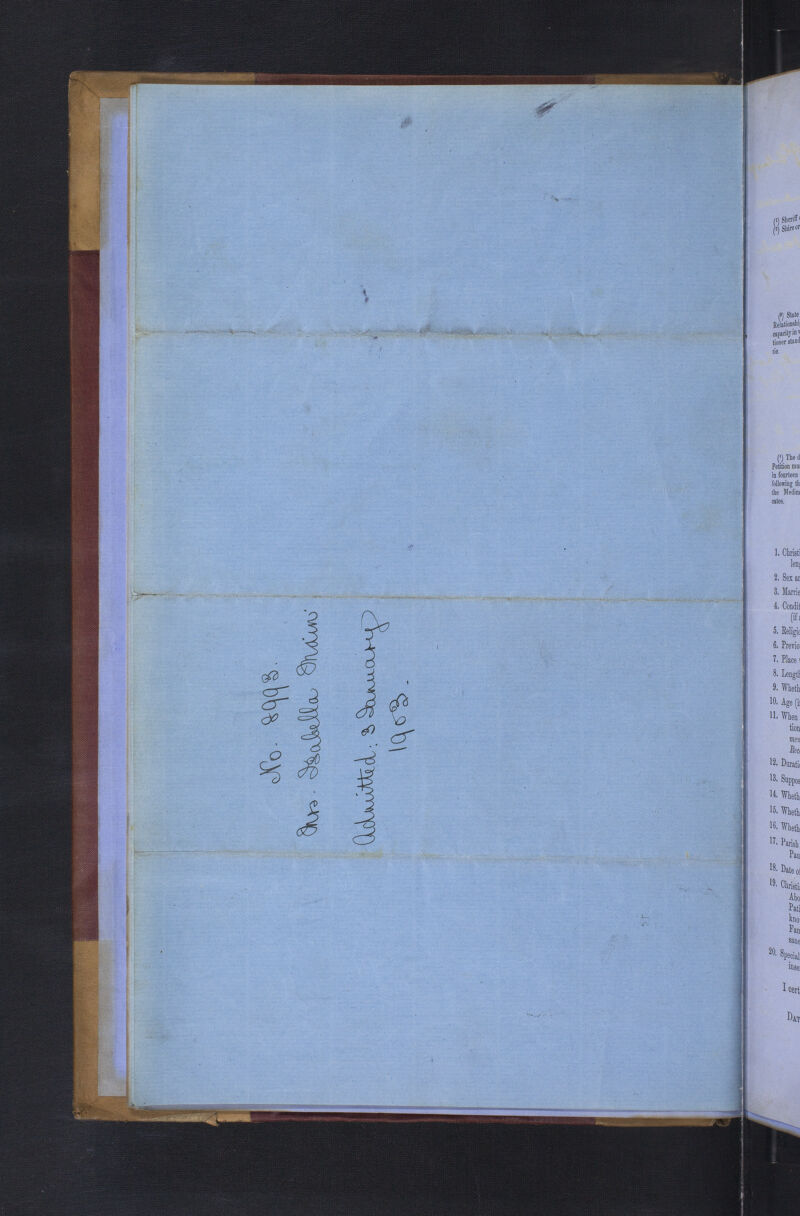 No. 8993.
Mrs. Isabella Main
Admitted: 3 January
1903.
(1) Sheriff
(2) Shire or
(3) State
Relationshi
capacity in
tioner stand
tic.
(4) The d
Petition mu
in fourteen
following th
the Medica
cates.
1. Christi
leng
2. Sex an
3. Marrie
4. Condit
(if
5. Religi
6. Previo
7. Place
8. Length
9. Wheth
10. Age (i
11. When
tion
men
Rec
12. Durati
13. Suppos
14. Wheth
15. Wheth
16. Wheth
17. Parish
Pau
18. Date of
19. Christia
Abo
Pati
kno
Fam
sane
20. Special
inse
I cert
DAT